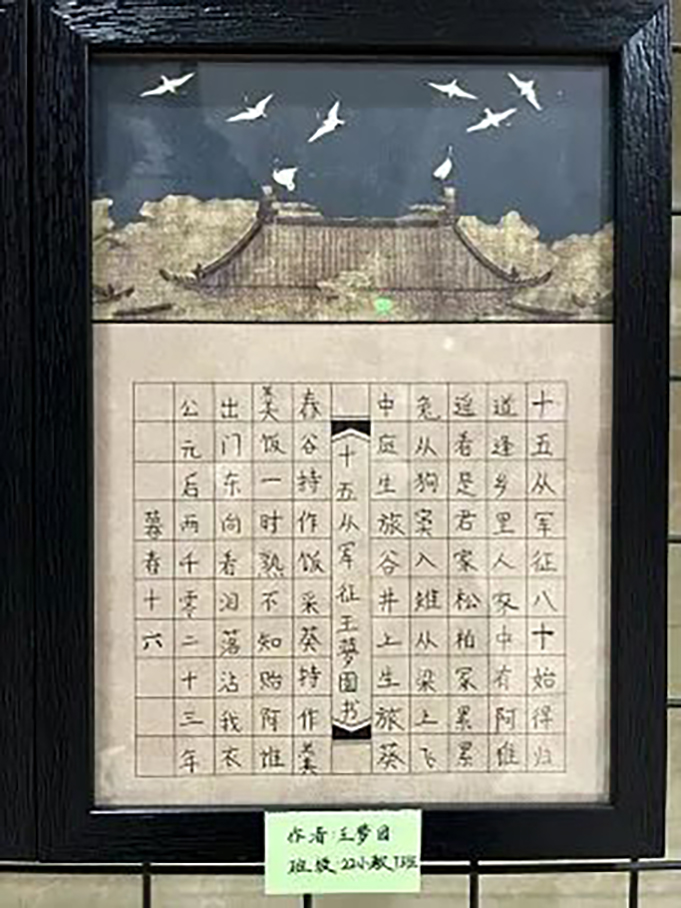 十五从军征八十始得归
道逢乡里人家中有阿谁
遥看是君家松柏冢累累
兔从狗窦入雉从梁上飞
中庭生旅谷井上生旅葵
十五从军征王梦圆书
舂谷持作饭采葵持作羹
羹饭一时熟不知贻阿谁
出门东向看泪落沾我衣
公元后两千零二十三年
暮春十六
作者:王梦圆
班级:22小教1班